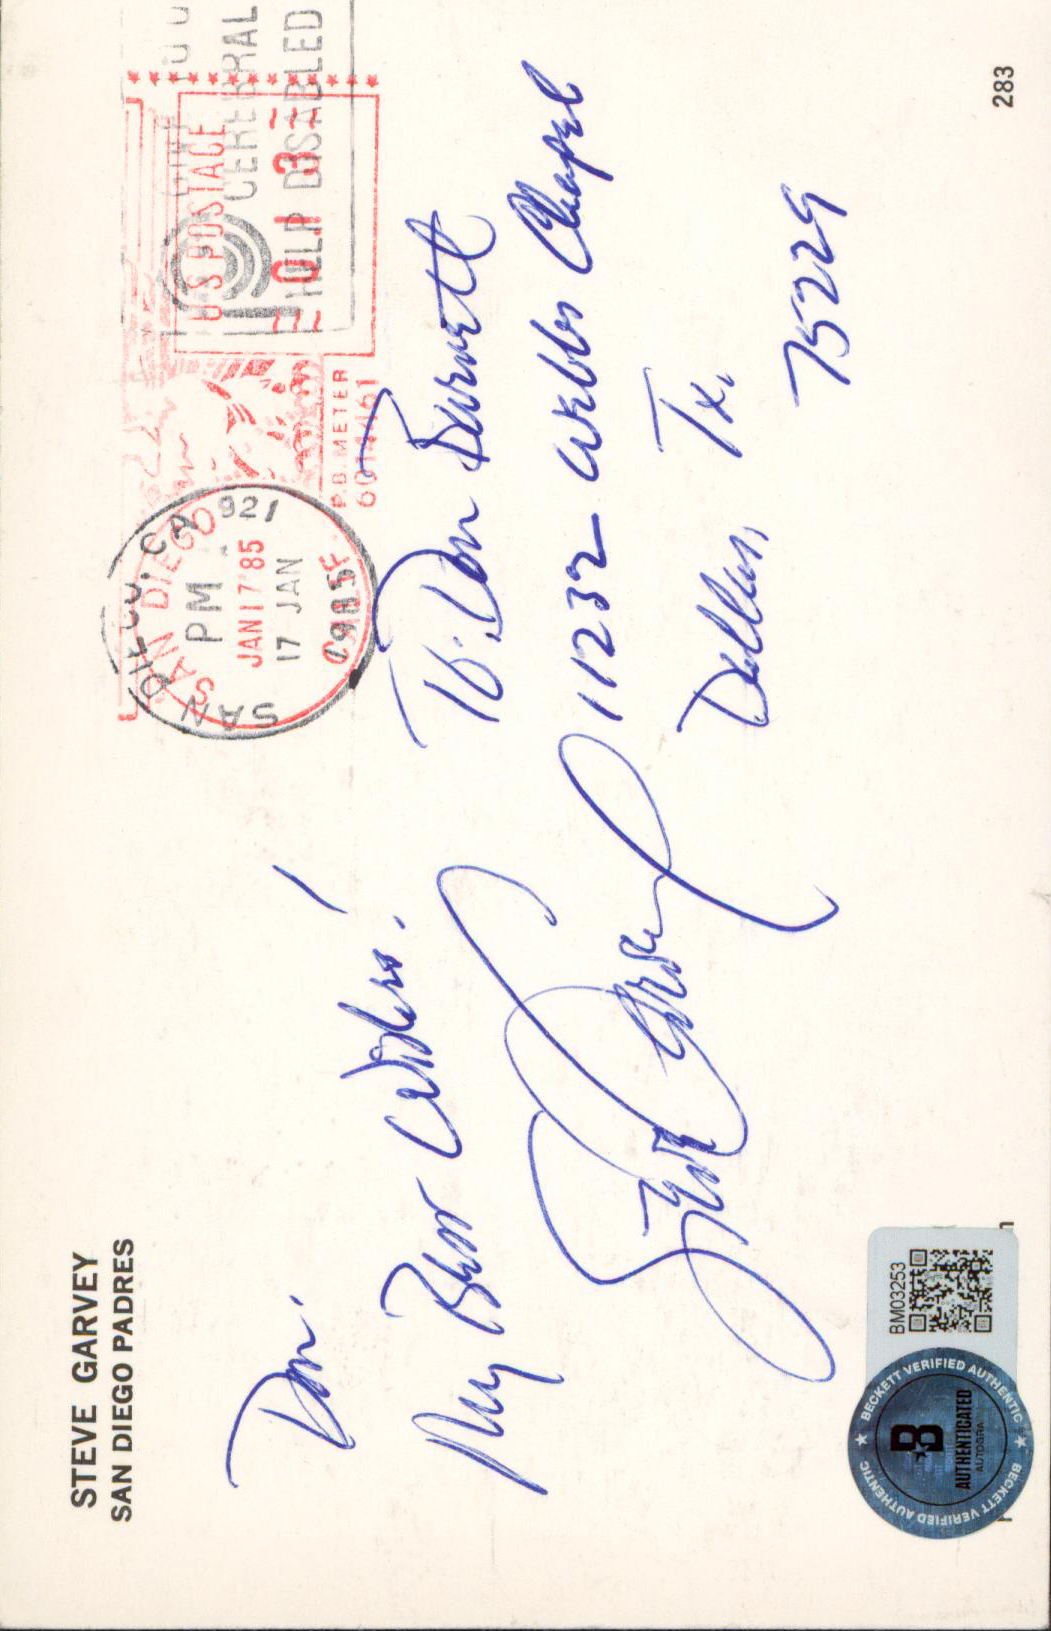 STEVE GARVEY
SAN DIEGO PADRES
Don.
My Best Wishes!
Steve Garvey
SAN DIEGO, CA 921
PM
17 JAN
1985
SAN DIEGO
JAN 17 '85
CALIF
U S POSTAGE
0.13
P.B. METER
CEREBRAL
HELP DISABLED
To: Don
11232 Webbs Chapel
Dallas, Tx.
75229
283
BM03253
BECKETT VERIFIED AUTHENTIC
BECKETT VERIFIED AUTHENTIC
B
AUTHENTICATED
AUTOGRA